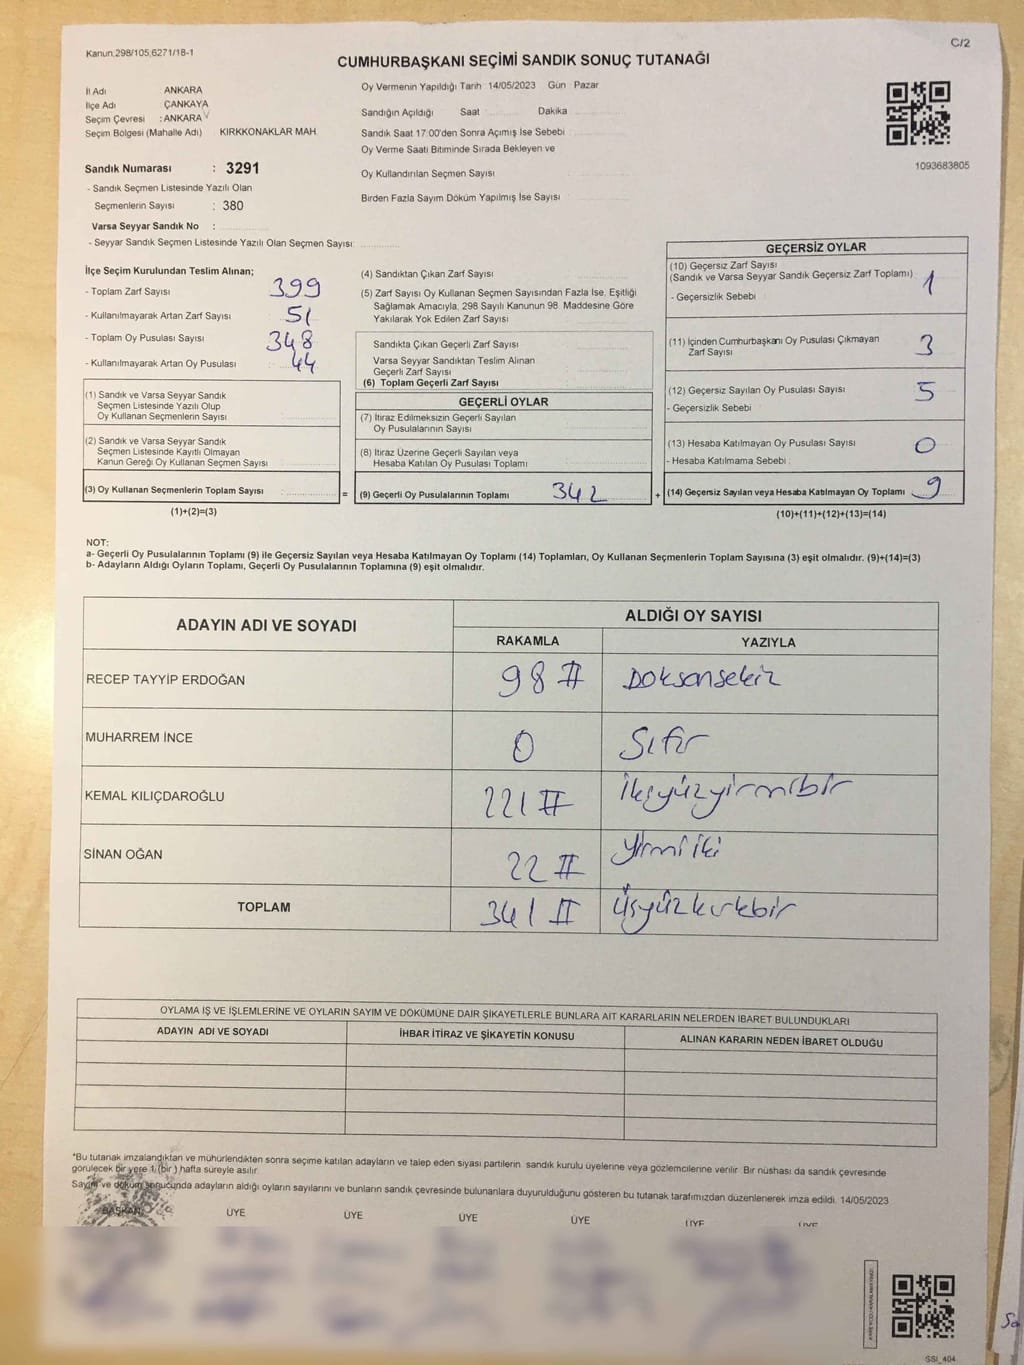 Kanun,298/105,6271/18-1
C/2
CUMHURBAŞKANI SEÇİMİ SANDIK SONUÇ TUTANAĞI
İl Adı ANKARA
İlçe Adı ÇANKAYA
Seçim Çevresi : ANKARA
Seçim Bölgesi (Mahalle Adı) KIRKKONAKLAR MAH.
Oy Vermenin Yapıldığı Tarih 14/05/2023 Gün Pazar
Sandığın Açıldığı Saat Dakika
Sandık Saat 17:00'den Sonra Açımış İse Sebebi
Oy Verme Saati Bitiminde Sırada Bekleyen ve
Oy Kullandırılan Seçmen Sayısı
Birden Fazla Sayım Döküm Yapılmış İse Sayısı
1093683805
Sandık Numarası : 3291
- Sandık Seçmen Listesinde Yazılı Olan
Seçmenlerin Sayısı : 380
Varsa Seyyar Sandık No :
- Seyyar Sandık Seçmen Listesinde Yazılı Olan Seçmen Sayısı:
İlçe Seçim Kurulundan Teslim Alınan;
- Toplam Zarf Sayısı 399
- Kullanılmayarak Artan Zarf Sayısı 51
- Toplam Oy Pusulası Sayısı 348
- Kullanılmayarak Artan Oy Pusulası 44
(1) Sandık ve Varsa Seyyar Sandık
Seçmen Listesinde Yazılı Olup
Oy Kullanan Seçmenlerin Sayısı
(2) Sandık ve Varsa Seyyar Sandık
Seçmen Listesinde Kayıtlı Olmayan
Kanun Gereği Oy Kullanan Seçmen Sayısı
(3) Oy Kullanan Seçmenlerin Toplam Sayısı :
=
(1)+(2)=(3)
(4) Sandıktan Çıkan Zarf Sayısı
(5) Zarf Sayısı Oy Kullanan Seçmen Sayısından Fazla İse, Eşitliği
Sağlamak Amacıyla, 298 Sayılı Kanunun 98. Maddesine Göre
Yakılarak Yok Edilen Zarf Sayısı
Sandıkta Çıkan Geçerli Zarf Sayısı
Varsa Seyyar Sandıktan Teslim Alınan
Geçerli Zarf Sayısı
(6) Toplam Geçerli Zarf Sayısı
GEÇERLİ OYLAR
(7) İtiraz Edilmeksizin Geçerli Sayılan
Oy Pusulalarının Sayısı
(8) İtiraz Üzerine Geçerli Sayılan veya
Hesaba Katılan Oy Pusulası Toplamı
(9) Geçerli Oy Pusulalarının Toplamı 342
+
GEÇERSİZ OYLAR
(10) Geçersiz Zarf Sayısı
(Sandık ve Varsa Seyyar Sandık Geçersiz Zarf Toplamı) 1
- Geçersizlik Sebebi
(11) İçinden Cumhurbaşkanı Oy Pusulası Çıkmayan
Zarf Sayısı 3
(12) Geçersiz Sayılan Oy Pusulası Sayısı 5
- Geçersizlik Sebebi
(13) Hesaba Katılmayan Oy Pusulası Sayısı 0
- Hesaba Katılmama Sebebi
(14) Geçersiz Sayılan veya Hesaba Katılmayan Oy Toplamı 9
(10)+(11)+(12)+(13)=(14)
NOT:
a- Geçerli Oy Pusulalarının Toplamı (9) ile Geçersiz Sayılan veya Hesaba Katılmayan Oy Toplamı (14) Toplamları, Oy Kullanan Seçmenlerin Toplam Sayısına (3) eşit olmalıdır. (9)+(14)=(3)
b- Adayların Aldığı Oyların Toplamı, Geçerli Oy Pusulalarının Toplamına (9) eşit olmalıdır.
ADAYIN ADI VE SOYADI
ALDIĞI OY SAYISI
RAKAMLA YAZIYLA
RECEP TAYYİP ERDOĞAN 98 # Doksansekiz
MUHARREM İNCE 0 Sıfır
KEMAL KILIÇDAROĞLU 221 # ikiyüzyirmibir
SİNAN OĞAN 22 # yirmi iki
TOPLAM 341 # üçyüzkırkbir
OYLAMA İŞ VE İŞLEMLERİNE VE OYLARIN SAYIM VE DÖKÜMÜNE DAİR ŞİKAYETLERLE BUNLARA AİT KARARLARIN NELERDEN İBARET BULUNDUKLARI
ADAYIN ADI VE SOYADI İHBAR İTİRAZ VE ŞİKAYETİN KONUSU ALINAN KARARIN NEDEN İBARET OLDUĞU
*Bu tutanak imzalandıktan ve mühürlendikten sonra seçime katılan adayların ve talep eden siyasi partilerin sandık kurulu üyelerine veya gözlemcilerine verilir. Bir nüshası da sandık çevresinde
görülecek bir yere 1 (bir) hafta süreyle asılır.
Sayım ve döküm sonucunda adayların aldığı oyların sayılarını ve bunların sandık çevresinde bulunanlara duyurulduğunu gösteren bu tutanak tarafımızdan düzenlenerek imza edildi. 14/05/2023
BAŞKAN ÜYE ÜYE ÜYE ÜYE ÜYE ÜYE
SSI_404